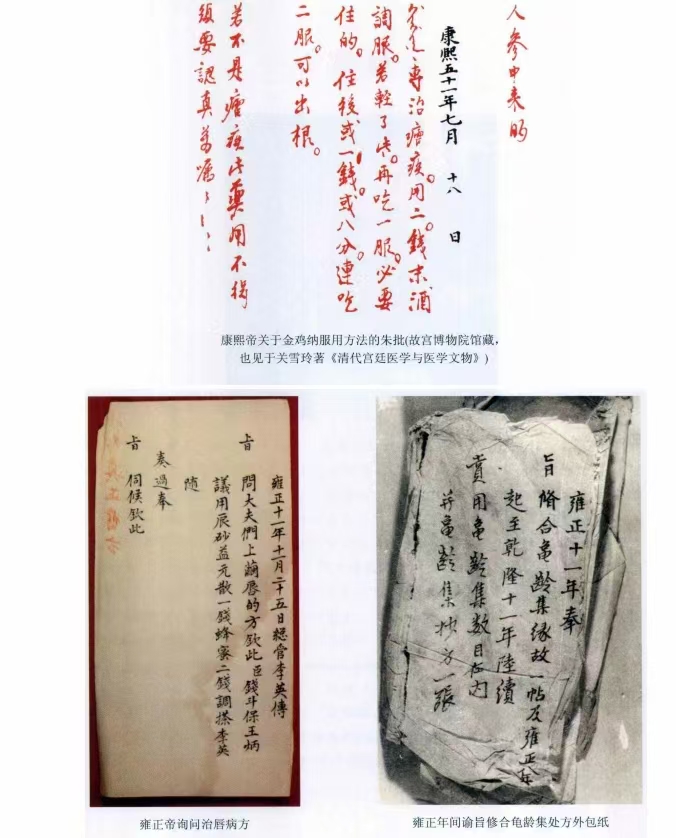 人參中来的
康熙五十一年七月 十八 日
專治瘧疾。用二錢末酒
調服。若輕了些。再吃一服。必要
住的。住後或一錢。或八分。連吃
二服。可以出根。
若不是瘧疾此藥用不得
須要認真萬囑
康熙帝关于金鸡纳服用方法的朱批(故宫博物院馆藏，
也见于关雪玲著《清代宫廷医学与医学文物》)
雍正十一年十一月二十五日總管李英傳
旨問大夫們上繭唇的方欽此臣錢斗保王炳
議用辰砂益元散一錢蜂蜜二錢調搽李英
隨
奏過奉
旨伺候欽此
雍正十一年奉
旨脩合龜齡集縁故一帖及雍正年
起至乾隆十一年陸續
賞用龜齡集数目在内
并龜齡集抄方一張
雍正帝询问治唇病方
雍正年间谕旨修合龟龄集处方外包纸